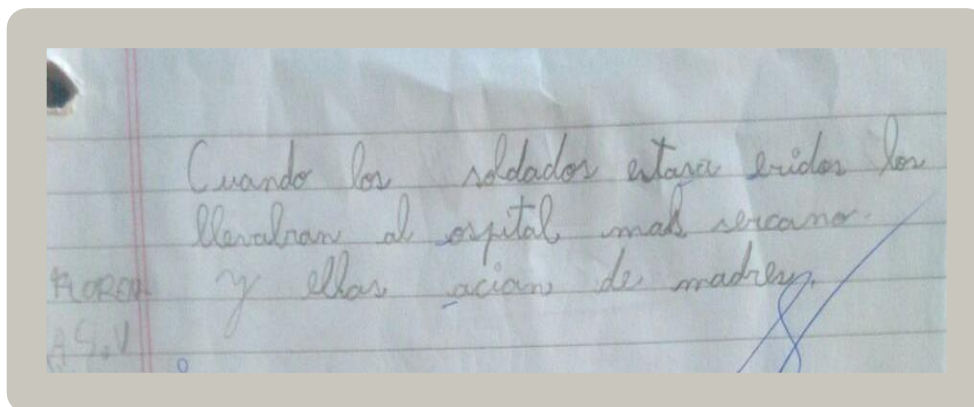 Cuando los soldados estara eridos los
llevabran al ospital mas sercano.
y ellas acian de madres.
FLOREN
A S.V
8